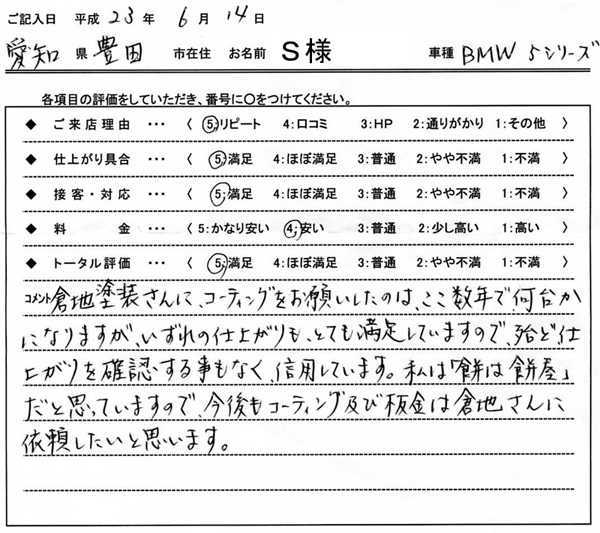 ご記入日 平成 23 年 6 月 14 日
愛知 県 豊田 市在住 お名前 S様 車種 BMW 5シリーズ
各項目の評価をしていただき、番号に○をつけてください。
◆ ご来店理由 ・・・ 〈 5:リピート 4:口コミ 3:HP 2:通りがかり 1:その他 〉
◆ 仕上がり具合 ・・・ 〈 5:満足 4:ほぼ満足 3:普通 2:やや不満 1:不満 〉
◆ 接客・対応 ・・・ 〈 5:満足 4:ほぼ満足 3:普通 2:やや不満 1:不満 〉
◆ 料 金 ・・・ 〈 5:かなり安い 4:安い 3:普通 2:少し高い 1:高い 〉
◆ トータル評価 ・・・ 〈 5:満足 4:ほぼ満足 3:普通 2:やや不満 1:不満 〉
コメント 倉地塗装さんに、コーティングをお願いしたのは、ここ数年で何台か
になりますが、いずれの仕上がりも、とても満足していますので、殆ど仕
上がりを確認する事もなく、信用しています。私は「餅は餅屋」
だと思っていますので、今後もコーティング及び板金は倉地さんに
依頼したいと思います。